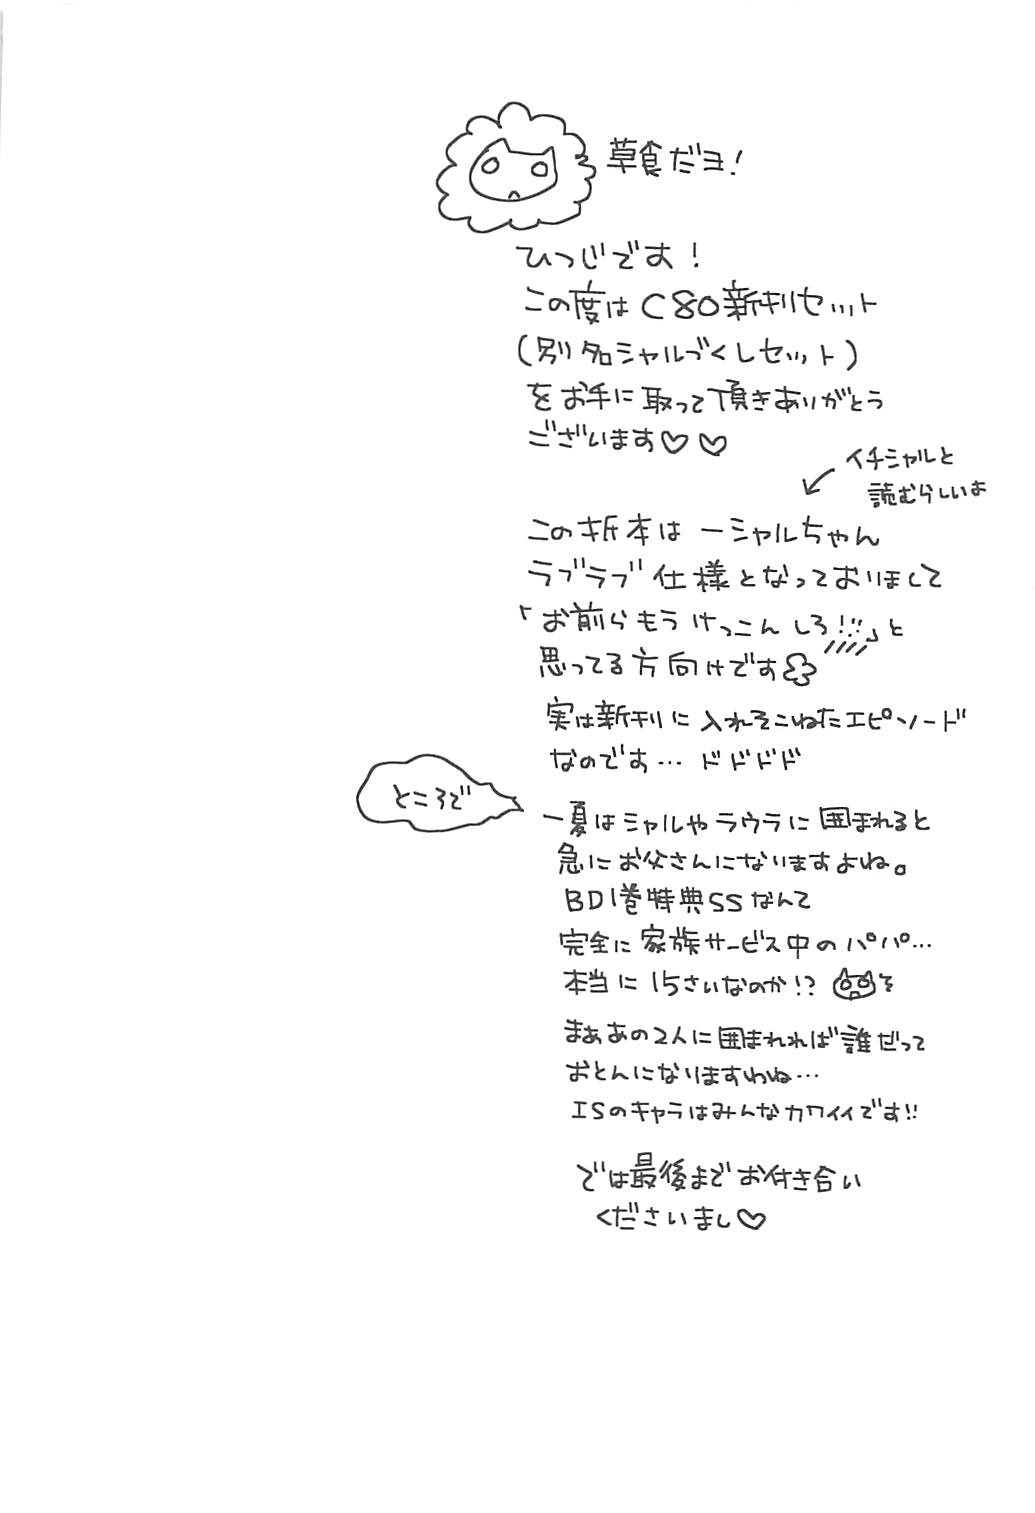 草食だヨ!
ひつじです!
この度はC80新刊セット
(別名シャルづくしセット)
をお手に取って頂きありがとう
ございます♡♡
イチシャルと
読むらしいよ
この折本は一シャルちゃん
ラブラブ仕様となっておりまして
「お前らもうけっこんしろ!!!」と
思ってる方向けです
実は新刊に入れそこねたエピソード
なのです… ドドドド
ところで
一夏はシャルやラウラに囲まれると
急にお父さんになりますよね。
BD1巻特典SSなんて
完全に家族サービス中のパパ…
本当に15さいなのか!?
まああの2人に囲まれれば誰だって
おとんになりますわね…
ISのキャラはみんなカワイイです!!
では最後までお付き合い
くださいまし♡